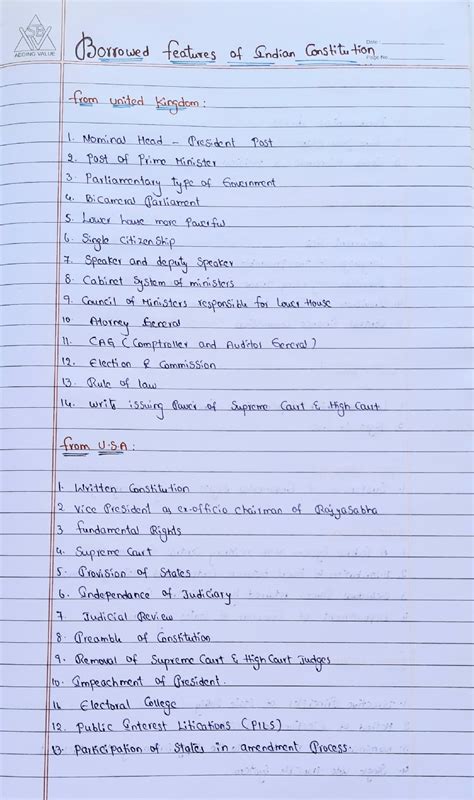 ADDING VALUE
Borrowed features of Indian Constitution
Date
Page No.
from united kingdom :
1. Nominal Head - President Post
2. Post of Prime Minister
3. Parliamentary type of Government
4. Bicameral Parliament
5. Lower house more Powerful
6. Single Citizenship
7. Speaker and deputy Speaker
8. Cabinet System of ministers
9. Council of Ministers responsible for lower House
10. Atorney General
11. CAG (Comptroller and Auditor General)
12. Election & Commission
13. Rule of law
14. writs issuing Power of Supreme Court & High Court
from U.S.A :
1. Written Constitution
2 Vice President as ex-officio chairman of Rajyasabha
3 Fundamental Rights
4. Supreme Court
5. Provision of States
6. Independance of Judiciary
7. Judicial Review
8. Preamble of Constitution
9. Removal of Supreme Court & High Court Judges
10. Impeachment of President.
11. Electoral College
12. Public Interest Litications (PILS)
13. Participation of States in amendment Process.